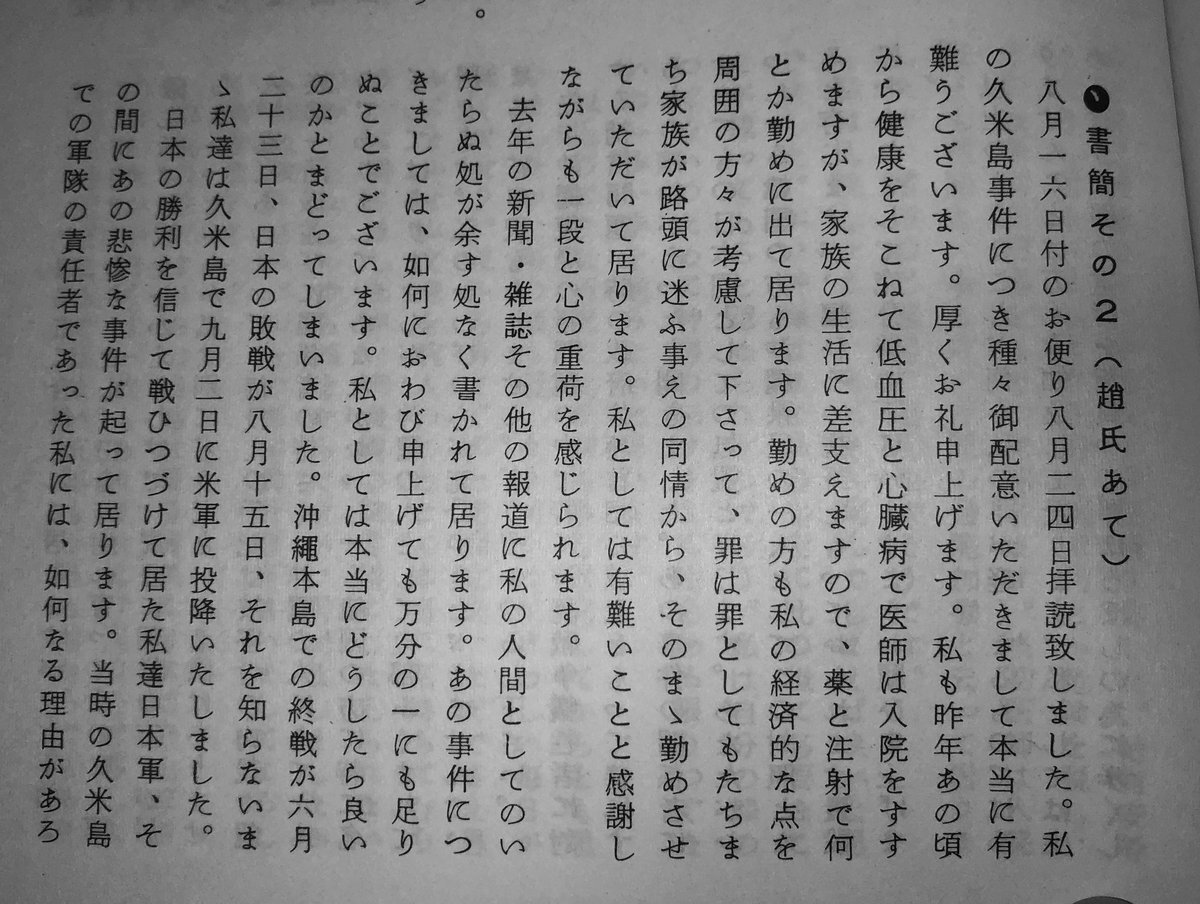 。
書簡その２（趙氏あて）
八月一六日付のお便り八月二四日拝読致しました。私
の久米島事件につき種々御配意いただきまして本当に有
難うございます。厚くお礼申上げます。私も昨年あの頃
から健康をそこねて低血圧と心臓病で医師は入院をすす
めますが、家族の生活に差支えますので、薬と注射で何
とか勤めに出て居ります。勤めの方も私の経済的な点を
周囲の方々が考慮して下さって、罪は罪としてもたちま
ち家族が路頭に迷ふ事えの同情から、そのまゝ勤めさせ
ていただいて居ります。私としては有難いことと感謝し
ながらも一段と心の重荷を感じられます。
去年の新聞・雑誌その他の報道に私の人間としてのい
たらぬ処が余す処なく書かれて居ります。あの事件につ
きましては、如何におわび申上げても万分の一にも足り
ぬことでございます。私としては本当にどうしたら良い
のかとまどってしまいました。沖縄本島での終戦が六月
二十三日、日本の敗戦が八月十五日、それを知らないま
ゝ私達は久米島で九月二日に米軍に投降いたしました。
日本の勝利を信じて戦ひつづけて居た私達日本軍、そ
の間にあの悲惨な事件が起って居ります。当時の久米島
での軍隊の責任者であった私には、如何なる理由があろ